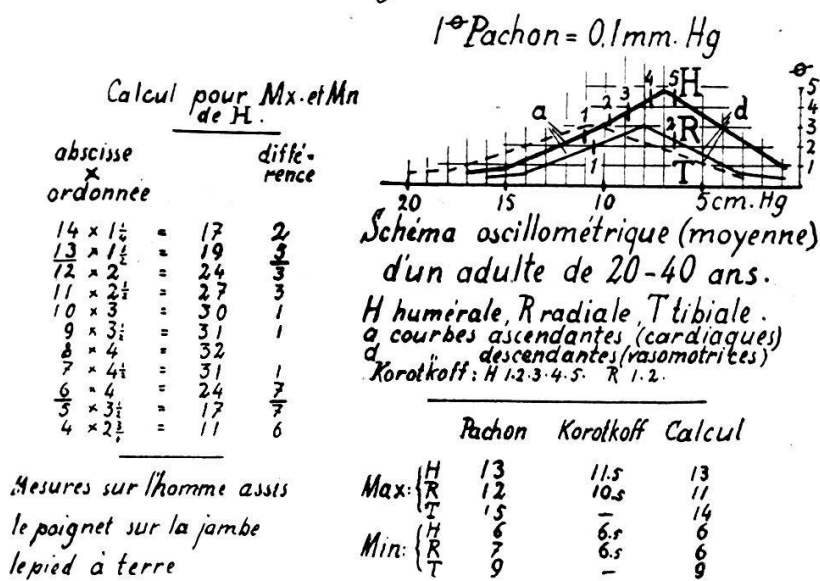 1ᶲ Pachon = 0.1 mm. Hg
Calcul pour Mx. et Mn
de H.
abscisse
×
ordonnée
diffé-
rence
14 × 1 1/4 = 17 2
13 × 1 1/2 = 19 5
12 × 2 = 24 3
11 × 2 1/2 = 27 3
10 × 3 = 30 1
9 × 3 1/2 = 31 1
8 × 4 = 32
7 × 4 1/2 = 31 1
6 × 4 = 24 7
5 × 3 1/2 = 17 7
4 × 2 3/4 = 11 6
Mesures sur l'homme assis
le poignet sur la jambe
le pied à terre
a
1 2 3 4 5 H
1 2 R
T
d
ᶲ
5
4
3
2
1
0
20 15 10 5 cm. Hg
Schéma oscillométrique (moyenne)
d'un adulte de 20-40 ans.
H humérale, R radiale, T tibiale.
a courbes ascendantes (cardiaques)
d " descendantes (vasomotrices)
Korotkoff: H 1.2.3.4.5. R 1.2.
Pachon Korotkoff Calcul
Max: H 13 11.5 13
R 12 10.5 11
T 15 – 14
Min: H 6 6.5 6
R 7 6.5 6
T 9 – 9